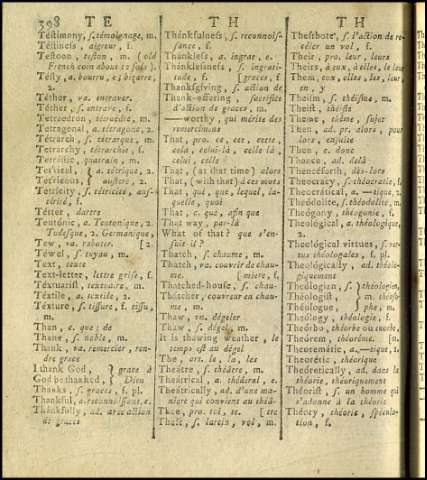 398 T E T H T H
Téstimony, s. témoignage, m.
Téstiness, aigreur, f.
Testoon, teston, m. (old
French coin about 12 sous).
Testy, a. bourru, e; bizarre,
2.
Téther, va. entraver.
Téther, s. entrave, f.
Tetraedron, tétraèdre, m.
Tetragonal, a. tétragone, 2.
Tetrarch, s. tétrarque, m.
Tetrarchy, tétrarchie, f.
Tetrástic, quatrain, m.
Tet'rical, } a. tétrique, 2.
Tet'ricous, } austere, 2.
Tetrícity, s. tétricité, aus-
térité, f.
Tétter, dartre
Teutónic, a. Teutonique, 2.
Tudesque, 2. Germanique,
Tew, va. rabater. [2.
Téwel, s. tuyau, m.
Text, texte
Text-letter, lettre grise, f.
Téxtuarist, textuaire, m.
Téxtile, a. textile, 2.
Téxture, s. tissure, f. tissu,
m.
Than, c. que; de
Thane, s. noble, m.
Thank, va. remercier, ren-
dre grace
I thank God, } grace à
God be thanked, } Dieu
Thanks, s. graces, f. pl.
Thankful, a. reconnoissant, e.
Thánkfully, ad. avec action
de graces
Thánkfulness, s. reconnois-
sance, f.
Thánkless, a. ingrat, e.
Thánklessness, s. ingrati-
tude, f. [graces, f
Thanksgíving, s. action de
Thank-offering, sacrifice
d'action de graces, m.
—worthy, qui mérite des
remercîmens
That, pro. ce, cet, cette,
cela, celui-là, celle là,
celui, celle
That, (at that time) alors
That, (with that) à ces mots
That, qui, que, lequel, la-
quelle, quoi
That, c. que, afin que
That way, par-là
What of that? que s'en-
suit il?
Thatch, s. chaume, m.
Thatch, va. couvrir de chau-
me. [miere, f.
Thatched-house, s. chau-
Thátcher, couvreur en chau-
me, m.
Thaw, vn. dégeler
Thaw, s. dégel, m.
It is thawing weather, le
temps est au dégel
The, art. le, la, les
Theátre, s. théâtre, m.
Theátrical, a. théâtral, e.
Theátrically, ad. d'une ma-
niere qui convient au théâ-
Thee, pro. toi, te. [tre
Theft, s. larcin, vol, m.
Theftbote, s. l'action de re-
céler un vol, f.
Their, pro. leur, leurs
Theirs, à eux, à elles, le leur
Them, eux, elles, les, leur,
en, y
Théism, s. théisme, m.
Theist, théiste
Theme, thême, sujet
Then, ad. pr. alors, pour
lors, ensuite
Then, c. donc
Thence, ad. delà
Thenceforth, dès-lors
Theocracy, s. théocratie, f.
Theocrátical, a. —tique, 2.
Théodolite, s. théodolite, m.
Theógony, théogonie, f.
Theológical, a. théologique,
2.
Theológical virtues, s. ver-
tus théologales, f. pl.
Theológically, ad. théolo-
giquement
Theólogian, s. } théologien,
Théologist, } m. théolo-
Théologue, } phe, m.
Theólogy, théologie, f.
Theórbo, théorbe ou tuorbe,
Theórem, théorême. [m.
Theoremátic, a. —tique, 2.
Theorétic, théorique
Theorétically, ad. dans la
théorie, théoriquement
Théorist, s. un homme qui
s'adonne à la théorie
Théory, théorie, spécula-
tion, f.